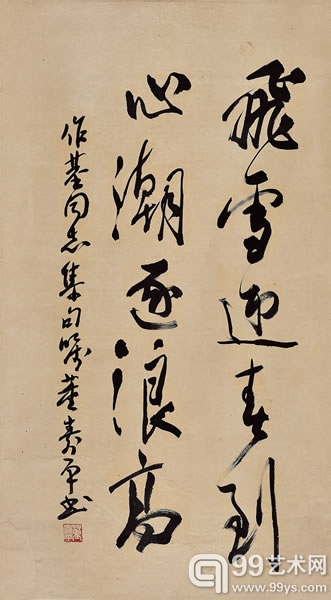 飛雪迎春到
心潮逐浪高
作基同志集句嘱董寿平书
99艺术网
www.99ys.com